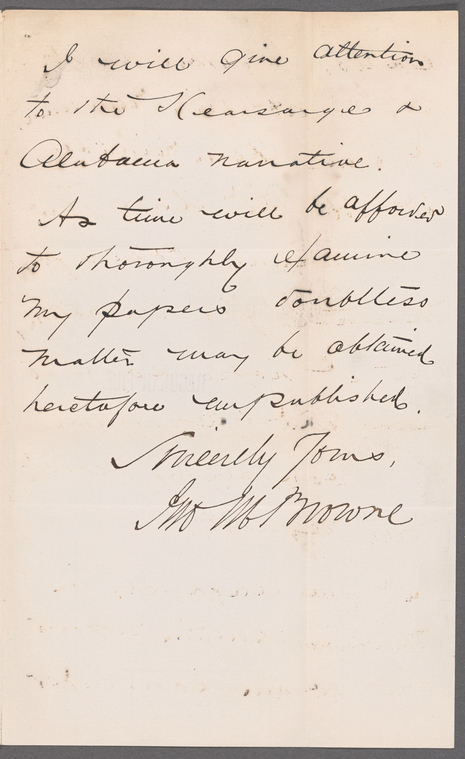 I will give attention
to the Kearsarge &
Alabama narrative.
As time will be afforded
to thoroughly examine
my papers doubtless
matter may be obtained
heretofore unpublished.
Sincerely Yours,
Jno M Browne